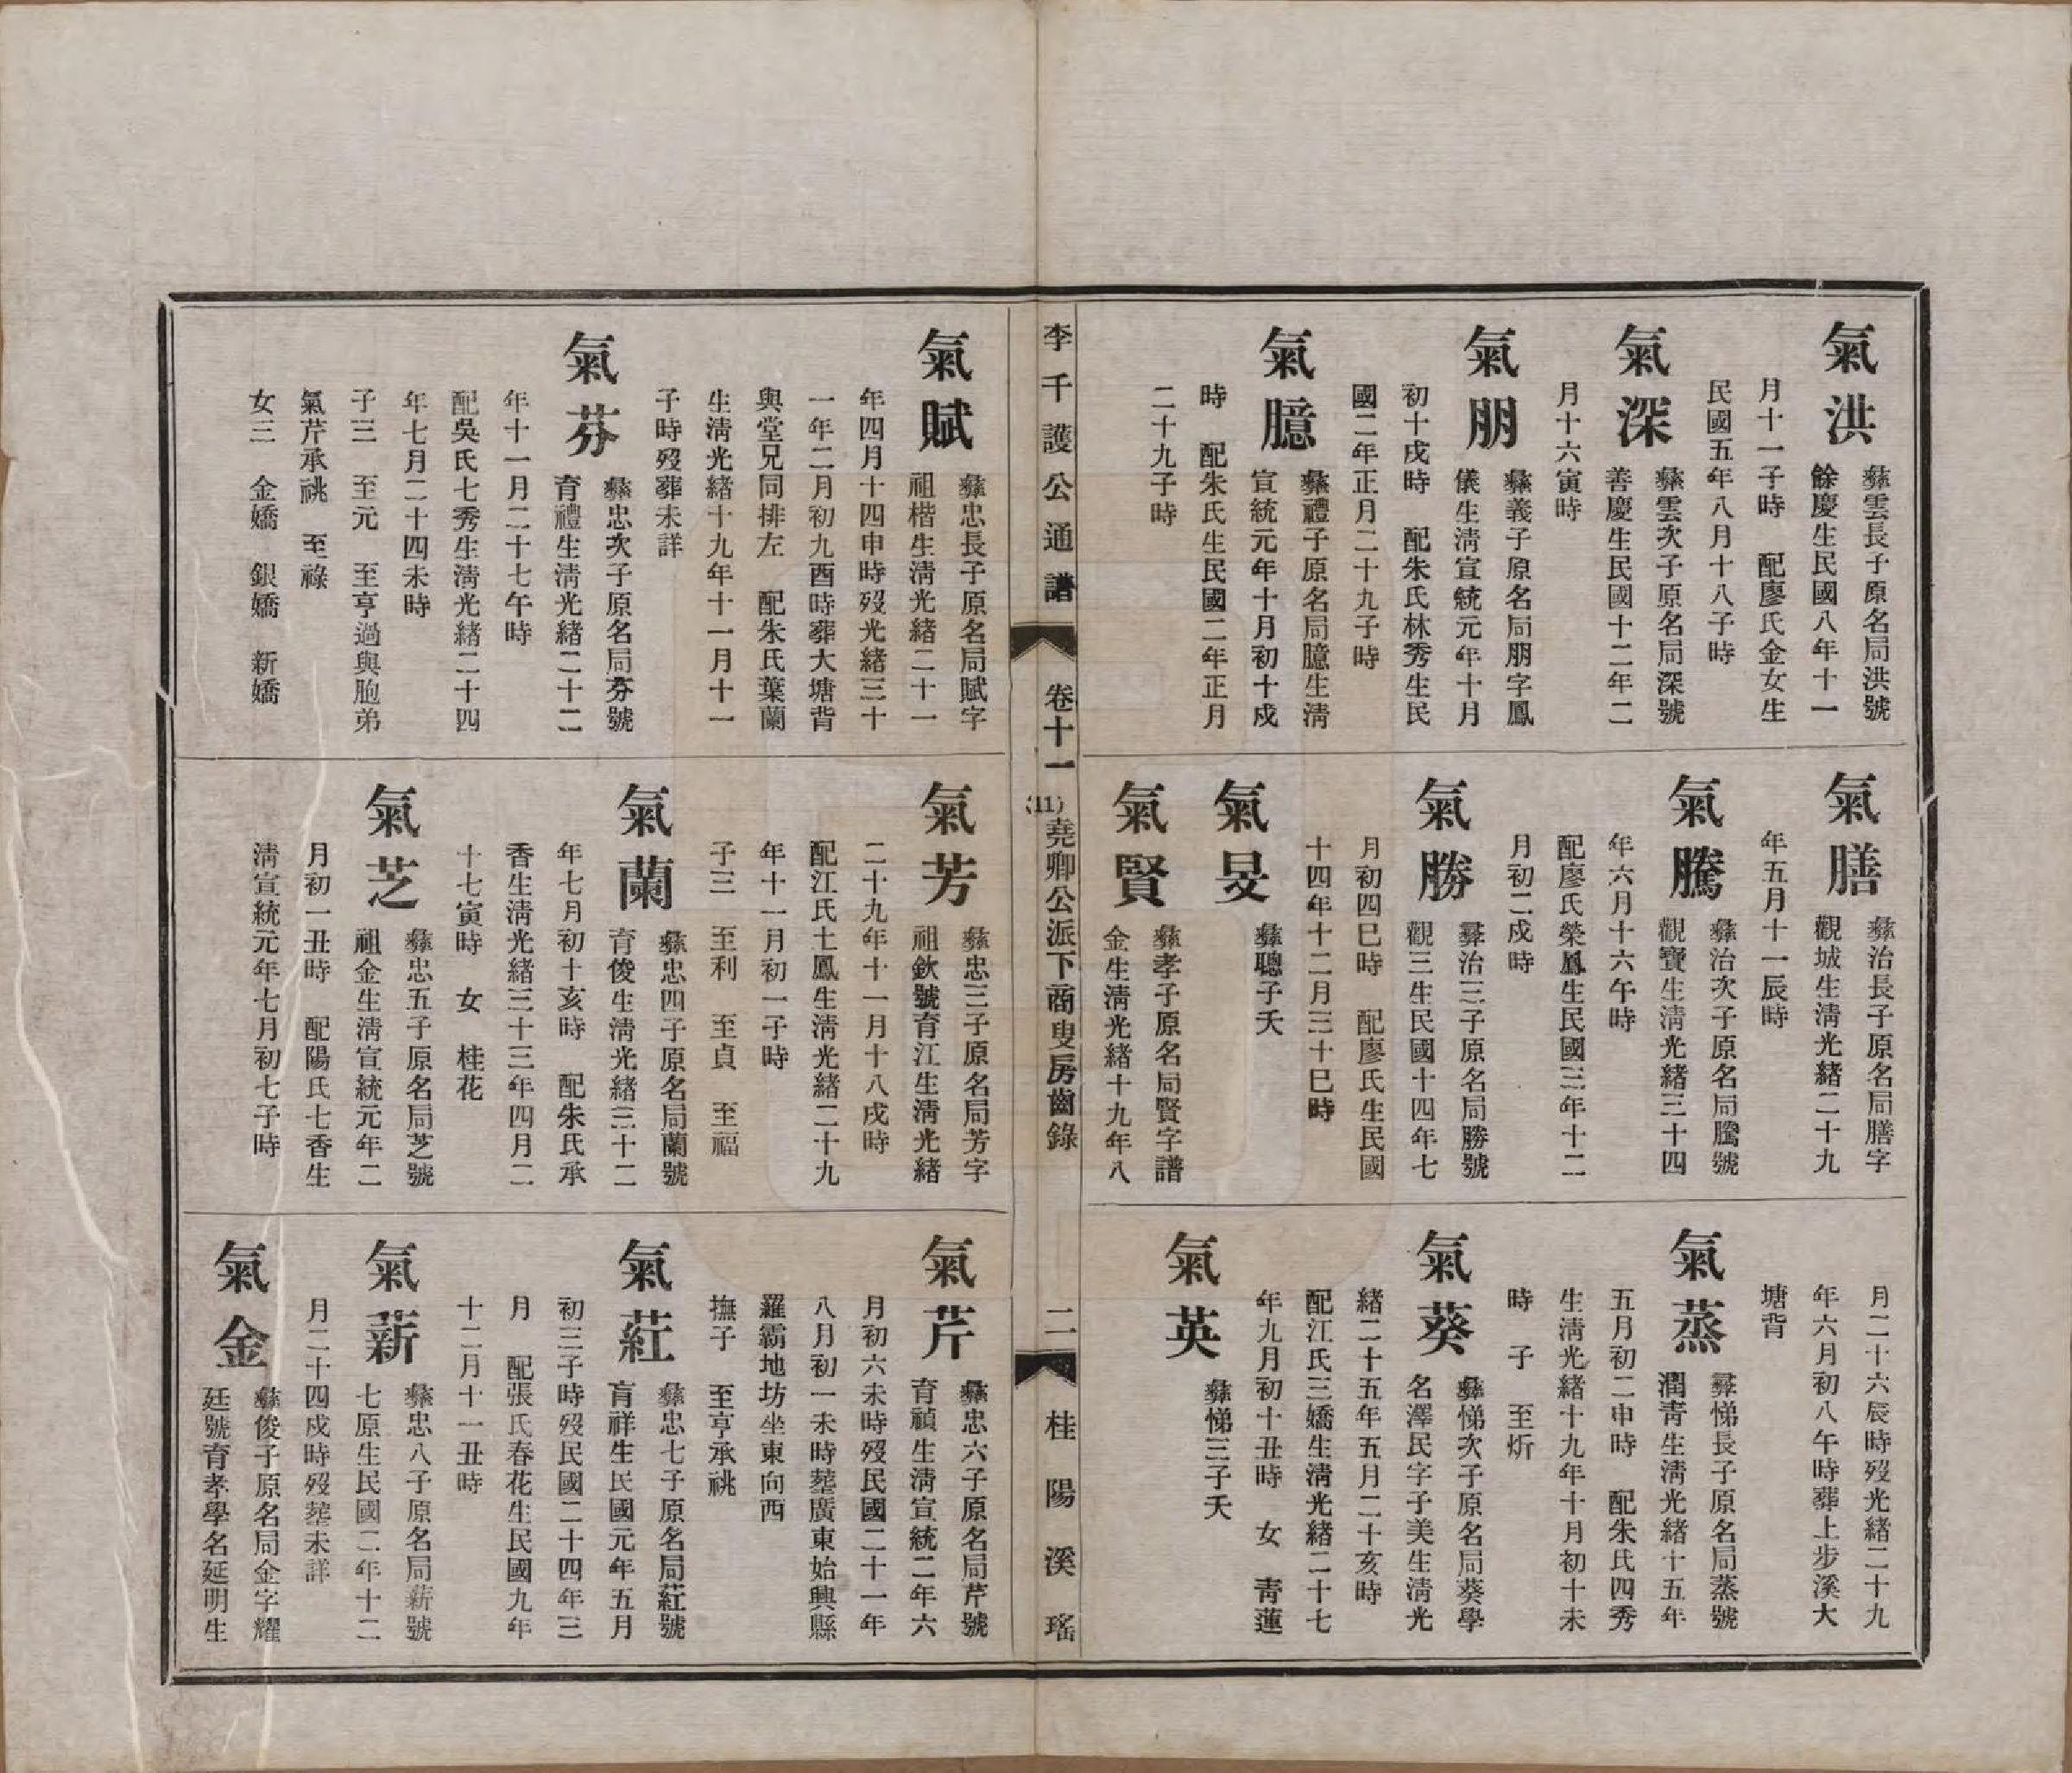 氣洪
彝雲長子原名局洪號
餘慶生民國八年十一
月十一子時 配廖氏金女生
民國五年八月十八子時
氣深
彝雲次子原名局深號
善慶生民國十二年二
月十六寅時
氣朋
彝義子原名局朋字鳳
儀生淸宣統元年十月
初十戌時 配朱氏林秀生民
國二年正月二十九子時
氣臆
彝禮子原名局臆生淸
宣統元年十月初十戌
時 配朱氏生民國二年正月
二十九子時
氣膳
彝治長子原名局膳字
觀城生淸光緒二十九
年五月十一辰時
氣騰
彝治次子原名局騰號
觀寶生淸光緒三十四
年六月十六午時
配廖氏榮鳳生民國三年十二
月初二戌時
氣勝
彝治三子原名局勝號
觀三生民國十四年七
月初四巳時 配廖氏生民國
十四年十二月三十巳時
氣旻
彝聰子夭
氣賢
彝孝子原名局賢字譜
金生淸光緒十九年八
月二十六辰時歿光緒二十九
年六月初八午時葬上步溪大
塘背
氣蒸
彝悌長子原名局蒸號
潤靑生淸光緒十五年
五月初二申時 配朱氏四秀
生淸光緒十九年十月初十未
時 子 至炘
氣葵
彝悌次子原名局葵學
名澤民字子美生淸光
緒二十五年五月二十亥時
配江氏三嬌生淸光緒二十七
年九月初十丑時 女 靑蓮
氣英
彝悌三子夭
李千護公通譜 卷十一 (11) 堯卿公派下商叟房齒錄 二 桂陽溪瑤
氣賦
彝忠長子原名局賦字
祖楷生淸光緒二十一
年四月十四申時歿光緒三十
一年二月初九酉時葬大塘背
與堂兄同排左 配朱氏葉蘭
生淸光緒十九年十一月十一
子時歿葬未詳
氣芬
彝忠次子原名局芬號
育禮生淸光緒二十二
年十一月二十七午時
配吳氏七秀生淸光緒二十四
年七月二十四未時
子三 至元 至亨過與胞弟
氣芹承祧 至祿
女三 金嬌 銀嬌 新嬌
氣芳
彝忠三子原名局芳字
祖欽號育江生淸光緒
二十九年十一月十八戌時
配江氏七鳳生淸光緒二十九
年十一月初一子時
子三 至利 至貞 至福
氣蘭
彝忠四子原名局蘭號
育俊生淸光緒三十二
年七月初十亥時 配朱氏承
香生淸光緒三十三年四月二
十七寅時 女 桂花
氣芝
彝忠五子原名局芝號
祖金生淸宣統元年二
月初一丑時 配陽氏七香生
淸宣統元年七月初七子時
氣芹
彝忠六子原名局芹號
育禎生淸宣統二年六
月初六未時歿民國二十一年
八月初一未時塟廣東始興縣
羅霸地坊坐東向西
撫子 至亨承祧
氣葒
彝忠七子原名局葒號
育祥生民國元年五月
初三子時歿民國二十四年三
月 配張氏春花生民國九年
十二月十一丑時
氣薪
彝忠八子原名局薪號
七原生民國二年十二
月二十四戌時歿塟未詳
氣金
彝俊子原名局金字耀
廷號育孝學名延明生